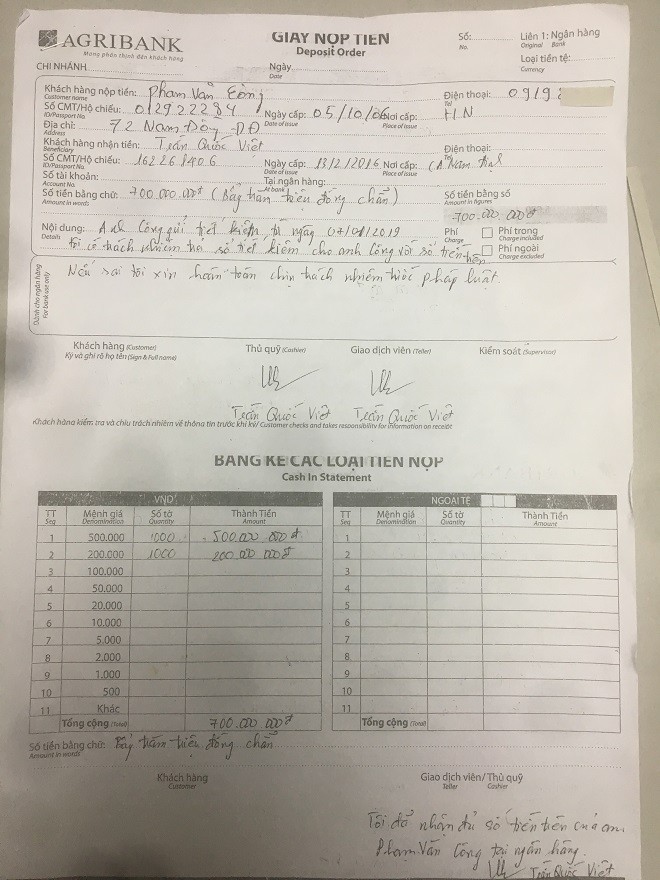 AGRIBANK
Mang phồn thịnh đến khách hàng
GIẤY NỘP TIỀN
Deposit Order
Số:
No.
Liên 1: Ngân hàng
Original Bank
Loại tiền tệ:
Currency
CHI NHÁNH
Ngày
Date
Khách hàng nộp tiền: Phạm Văn Công
Customer name
Điện thoại: 0919
Tel
Số CMT/Hộ chiếu: 012922284
ID/Passport No
Ngày cấp: 05/10/06
Date of issue
Nơi cấp: HN
Place of issue
Địa chỉ: 72 Nam Đồng - DĐ
Address
Khách hàng nhận tiền: Trần Quốc Việt
Beneficiary
Điện thoại:
Tel
Số CMT/Hộ chiếu:
ID/Passport No.
Ngày cấp: 13/2/2016
Date of issue
Nơi cấp: CA Nam Định
Place of issue
Số tài khoản:
Account No.
Tại ngân hàng:
At bank
Số tiền bằng chữ: 700.000.000đ (Bảy trăm triệu đồng chẵn)
Amount in words
Số tiền bằng số
Amount in figures
700.000.000đ
Nội dung: Anh Công gửi tiết kiệm từ ngày 07/01/2019
Details
tôi có trách nhiệm trả số tiết kiệm cho anh Công với số tiền trên
Phí
Charge
Phí trong
Charge included
Phí ngoài
Charge excluded
Dành cho ngân hàng
For bank use only
Nếu sai tôi xin hoàn toàn chịu trách nhiệm trước pháp luật.
Khách hàng (Customer)
Ký và ghi rõ họ tên (Sign & Full name)
Thủ quỹ (Cashier)
Giao dịch viên (Teller)
Kiểm soát (Supervisor)
Trần Quốc Việt
Trần Quốc Việt
Khách hàng kiểm tra và chịu trách nhiệm về thông tin trước khi ký/ Customer checks and takes responsibility for information on receipt
BẢNG KÊ CÁC LOẠI TIỀN NỘP
Cash In Statement
VND
NGOẠI TỆ
TT Mệnh giá Số tờ Thành Tiền
Seq Denomination Quantity Amount
TT Mệnh giá Số tờ Thành Tiền
Seq Denomination Quantity Amount
1 500.000 1000 500.000.000đ
1
2 200.000 1000 200.000.000đ
2
3 100.000
3
4 50.000
4
5 20.000
5
6 10.000
6
7 5.000
7
8 2.000
8
9 1.000
9
10 500
10
11 Khác
11
Tổng cộng (Total) 700.000.000đ
Tổng cộng (Total)
Số tiền bằng chữ: Bảy trăm triệu đồng chẵn
Amount in words
Khách hàng
Customer
Giao dịch viên/ Thủ quỹ
Teller Cashier
Tôi đã nhận đủ số tiền trên của anh
Phạm Văn Công tại ngân hàng.
Trần Quốc Việt